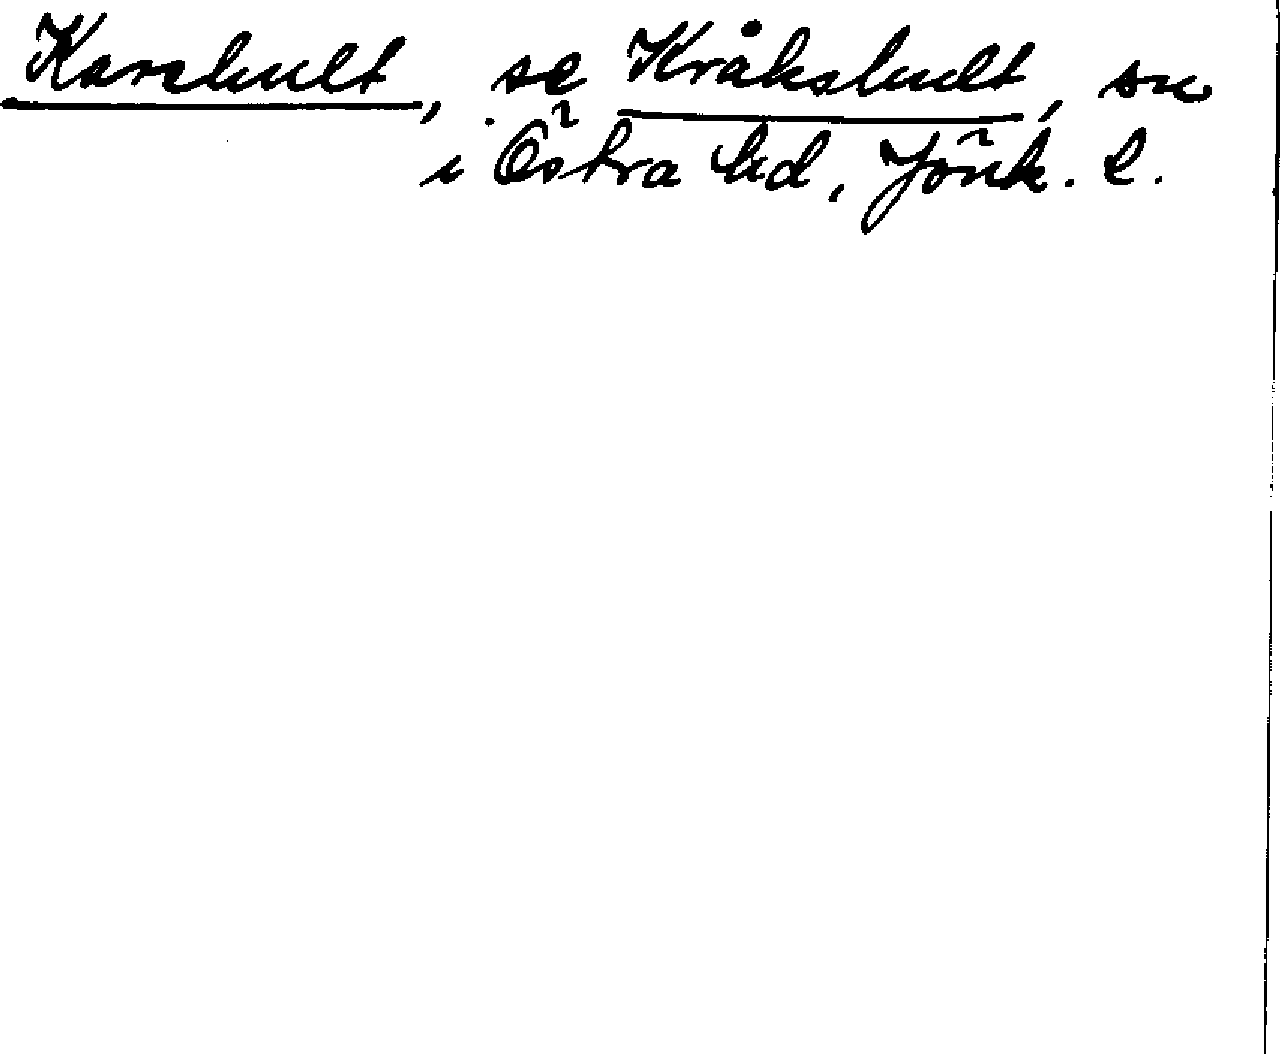 Karehult, se Kråkshult, sn
i Östra hd, Jönk. l.